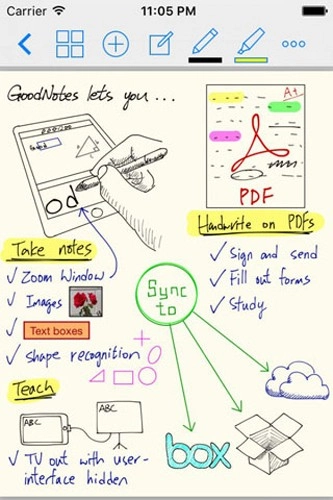 Carrier
11:05 PM
GoodNotes lets you ...
A+
PDF
Od
Handwrite on PDFs
Take notes
✓ Zoom Window
✓ Images
✓ Text boxes
✓ shape recognition
✓ Sign and send
✓ Fill out forms
✓ Study
Sync
to
Teach
ABC
ABC
✓ TV out with user-
interface hidden
box